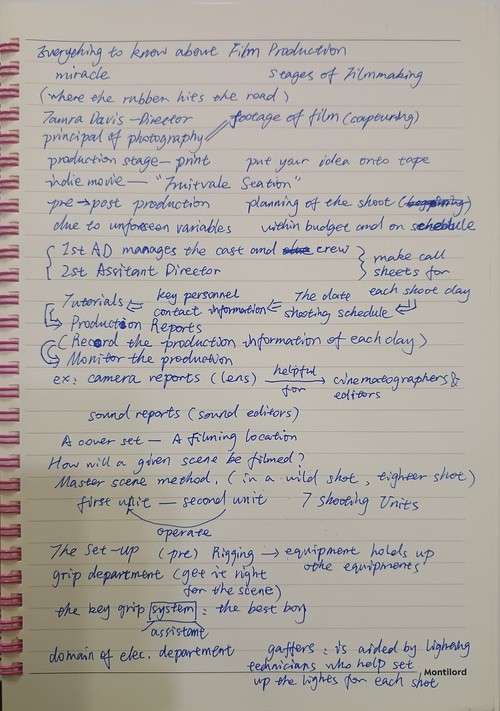 Everything to know about Film Production
miracle stages of Filmmaking
(where the rubber hits the road)
Tamra Davis - Director footage of film (capturing)
principal of photography
production stage - print put your idea onto tape
indie movie - "Fruitvale Station"
pre → post production planning of the shoot (beginning)
due to unforeseen variables within budget and on schedule
1st AD manages the cast and crew
2st Assitant Director
make call
sheets for
each shoot day
Tutorials ⇐ key personnel
contact information ⇐ The date
shooting schedule
→ Production Reports
(Record the production information of each day)
Monitor the production
ex: camera reports (lens) helpful for → cinematographers &
editors
sound reports (sound editors)
A cover set - A filming location
How will a given scene be filmed?
Master scene method. (in a wild shot, tighter shot)
first unit - second unit 7 shooting Units
operate
The set-up (pre) Rigging → equipment holds up
othe equipments
grip department (get it right
for the scene)
the key grip system: the best boy
assistant
domain of elec. department gaffers: is aided by lighting
technicians who help set
up the lights for each shot
Montilord